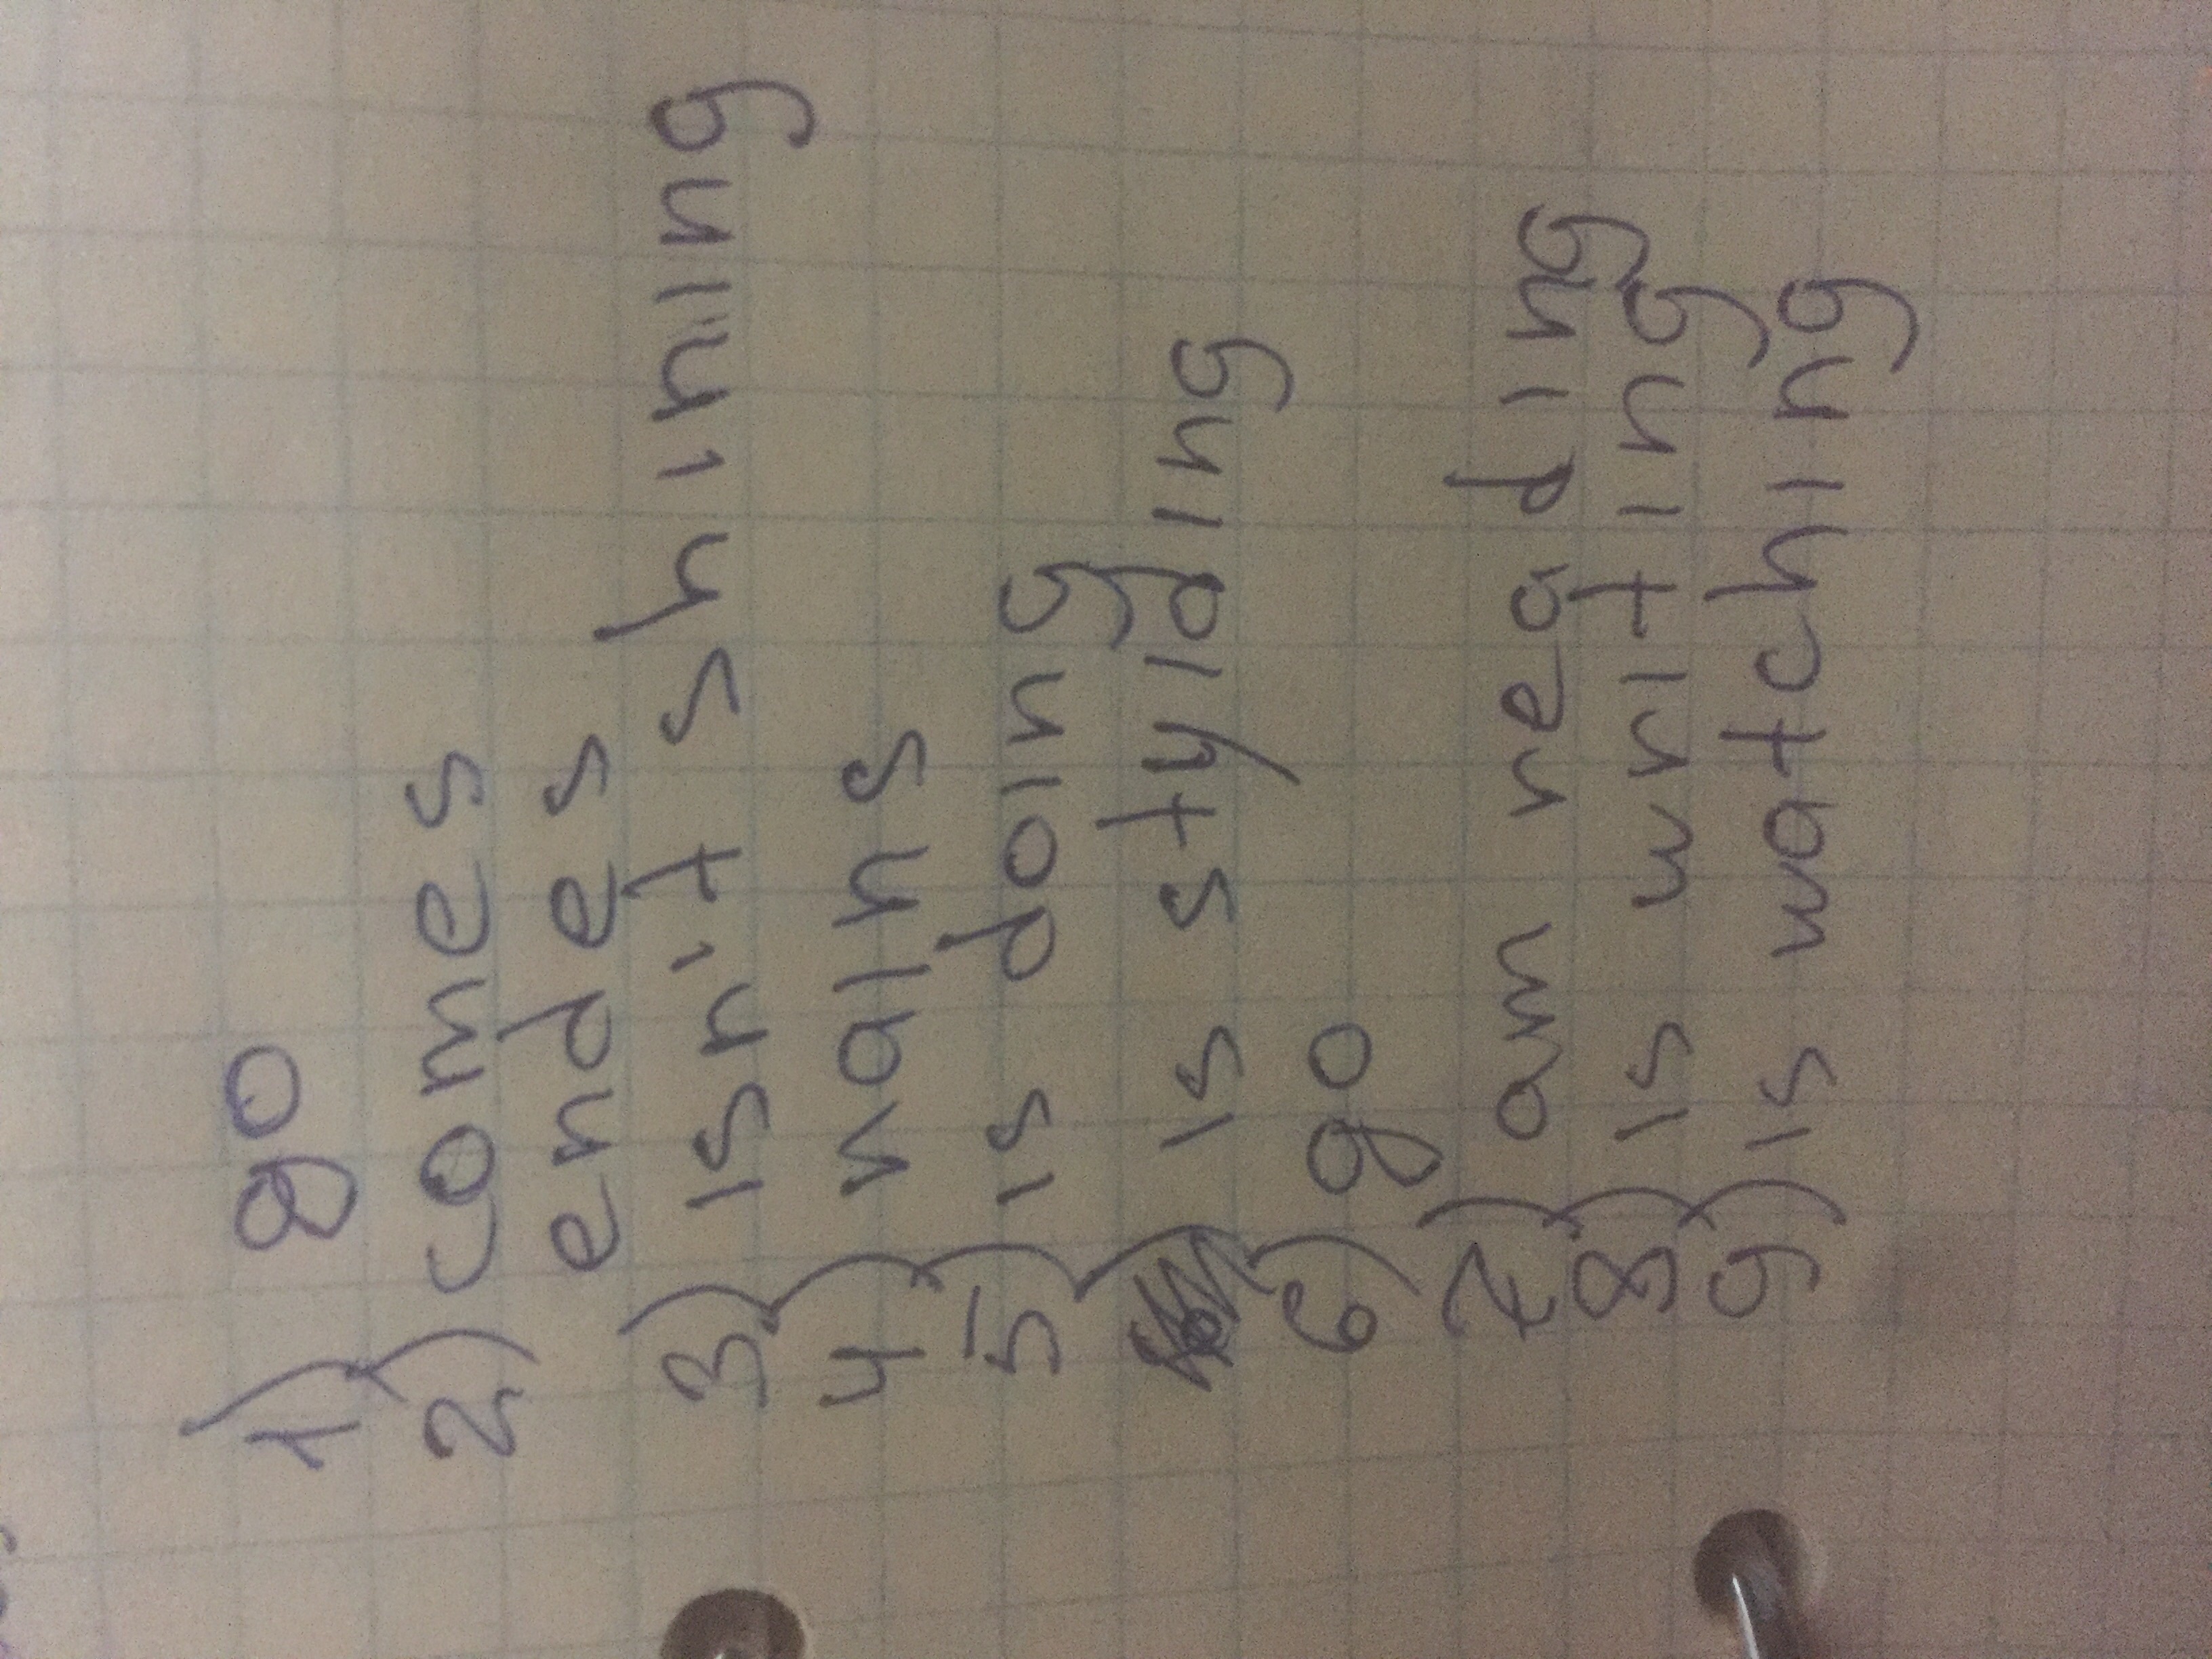 1) go
2) comes
endes
3) isn't shining
4) rains
5) is doing
is styiding
6) go
7) am reading
8) is writing
9) is watching